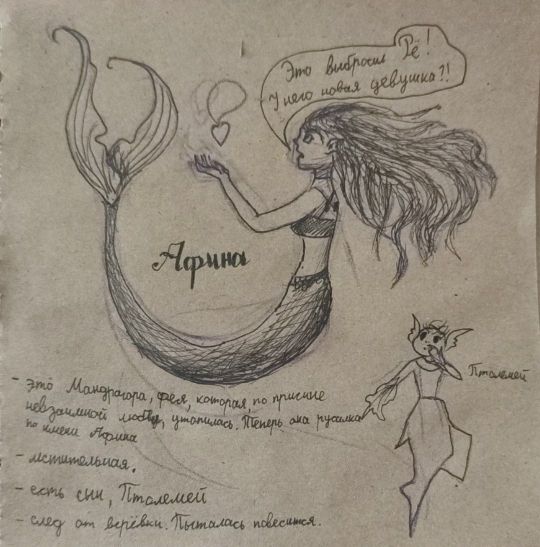 Это выбросил Рё!
У него новая девушка?!
Афина
Птолемей
- это Мандрагора, фея, которая, по причине
невзаимной любви, утопилась. Теперь она русалка
по имени Афина
- мстительная.
- есть сын, Птолемей
- след от верёвки. Пыталась повесится.